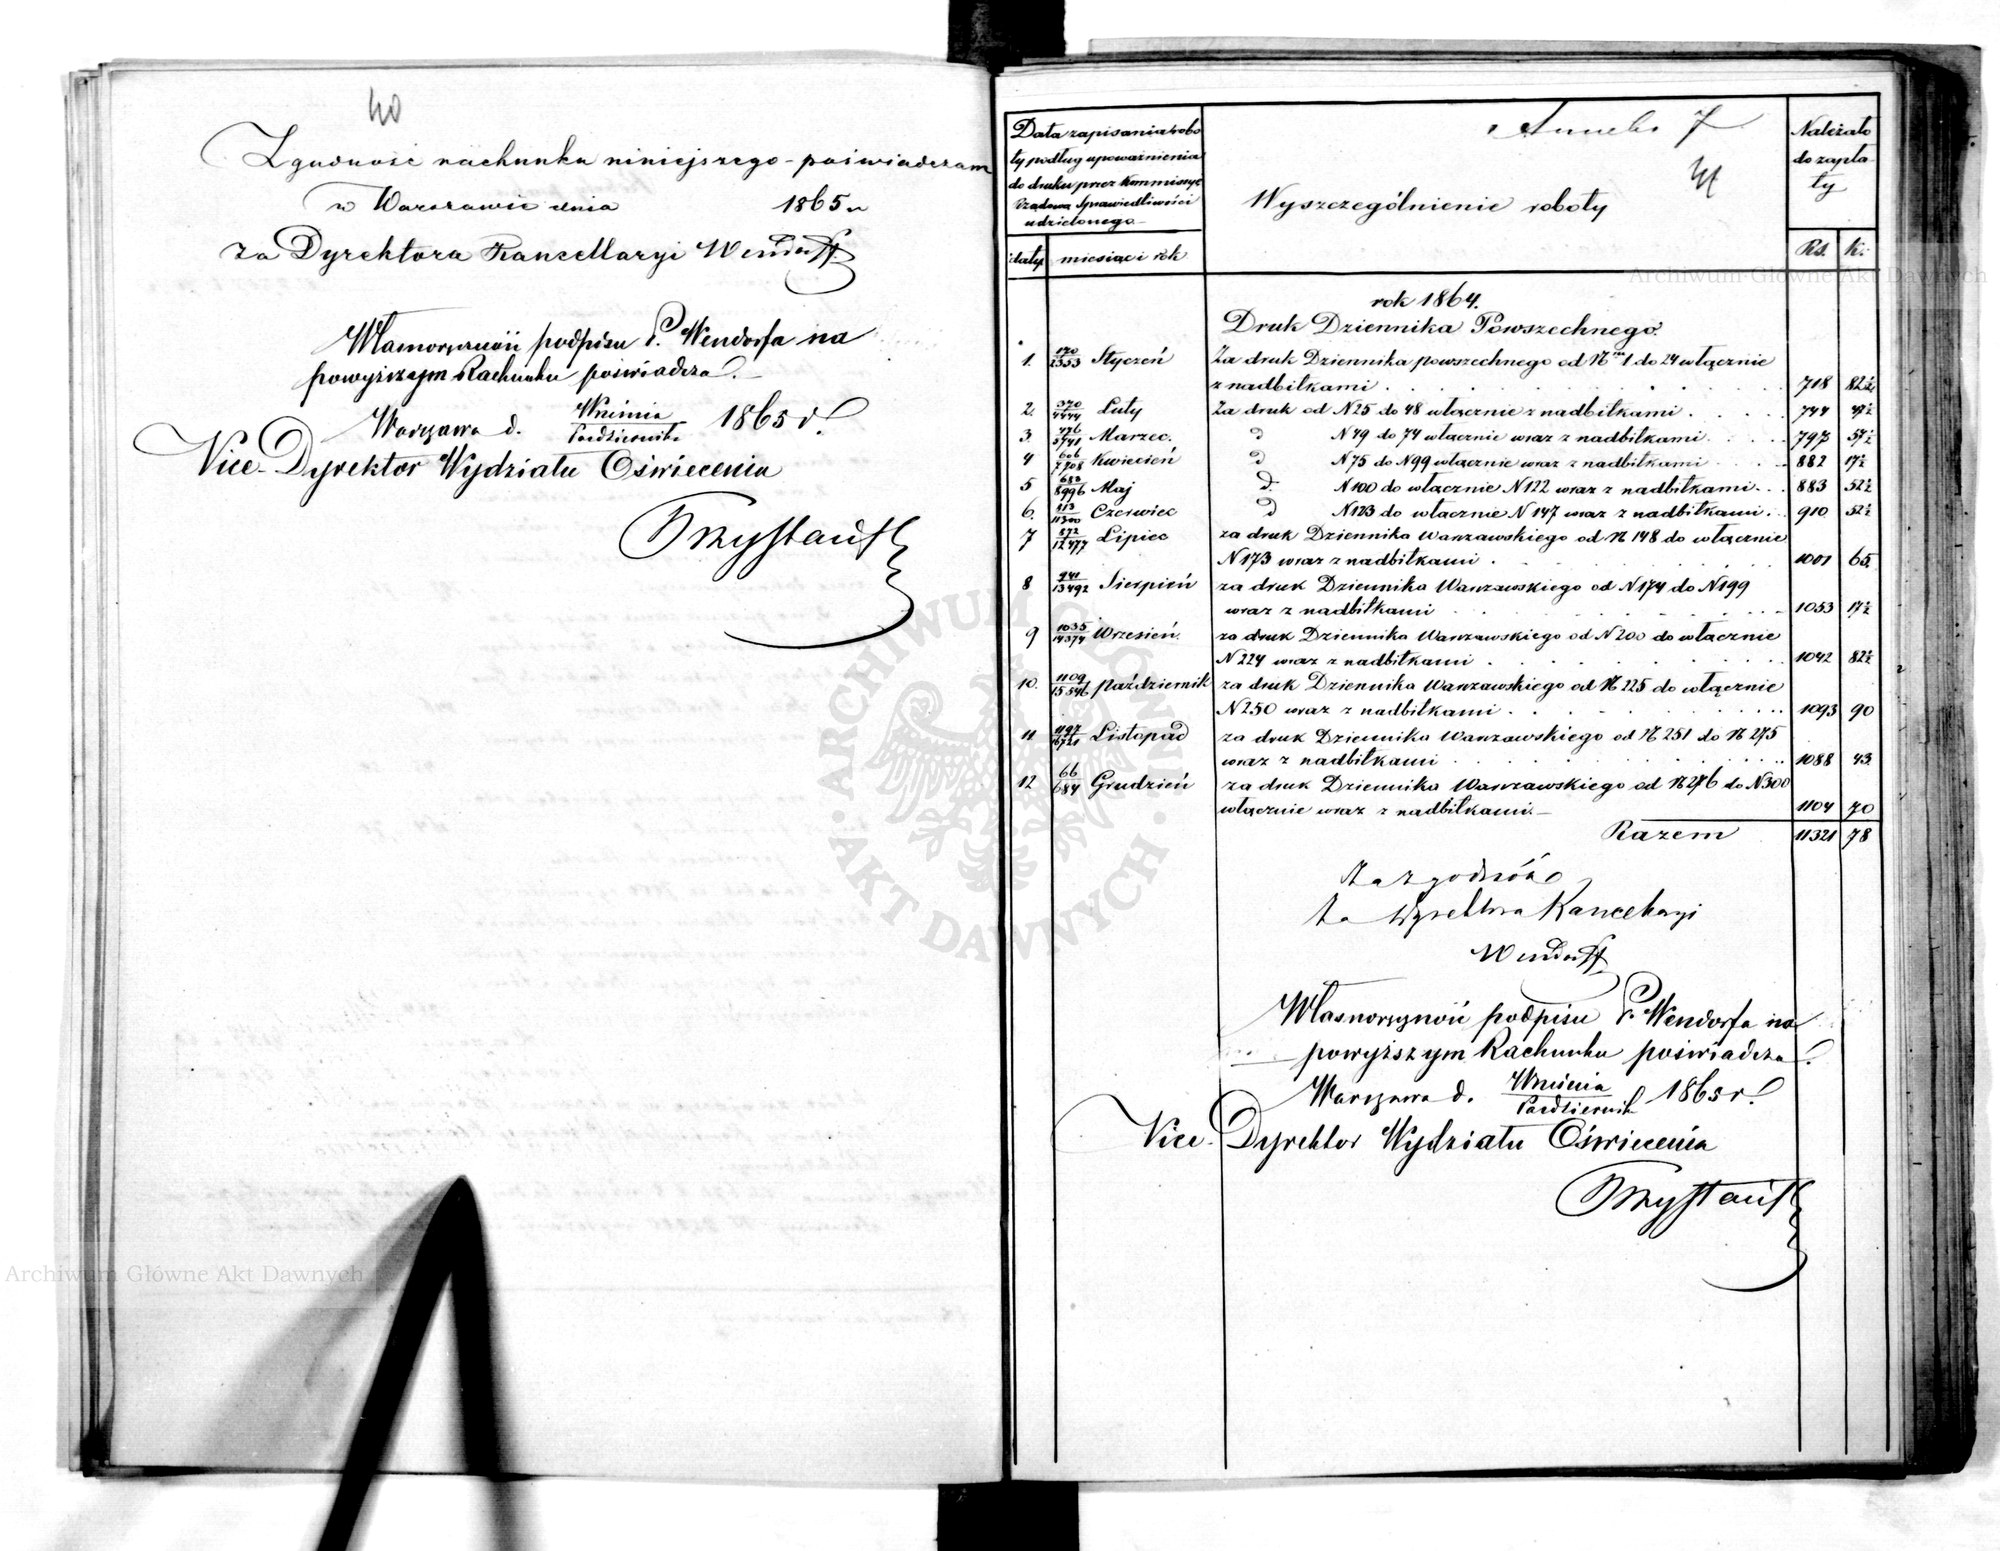 40
Zgodność rachunku niniejszego poświadczam
w Warszawie dnia 1865 r
za Dyrektora Kancellaryi Wendorff
Własnoręczność podpisu P. Wendorfa na
powyższym Rachunku poświadcza.
Warszawa d. Września/Października 1865 r.
Vice-Dyrektor Wydziału Oświecenia
Anneks 7
41
Data zapisania robo
ty podług upoważnienia
do druku przez Kommissyę
Rządową Sprawiedliwości
udzielonego
Wyszczególnienie roboty
Należało
do zapła
ty
daty miesiąc i rok
Rs. k.
rok 1864.
Druk Dziennika Powszechnego.
1. 170/2353 Styczeń Za druk Dziennika powszechnego od N 1 do 24 włącznie
z nadbitkami 718 82½
2. 370/4444 Luty Za druk od N25 do 48 włącznie z nadbitkami 744 47½
3. 476/5741 Marzec. d N49 do 74 włącznie wraz z nadbitkami 797 57½
4 606/7708 Kwiecień d N75 do N99 włącznie wraz z nadbitkami 882 17½
5 682/8996 Maj d N100 do włącznie N122 wraz z nadbitkami 883 52½
6. 813/11300 Czerwiec d N123 do włącznie N147 wraz z nadbitkami 910 52½
7 872/12477 Lipiec za druk Dziennika Warszawskiego od N148 do włącznie
N173 wraz z nadbitkami 1001 65
8 941/13492 Sierpień za druk Dziennika Warszawskiego od N174 do N199
wraz z nadbitkami 1053 17½
9 1035/14374 Wrzesień za druk Dziennika Warszawskiego od N200 do włącznie
N224 wraz z nadbitkami 1042 82½
10. 1109/15546 Październik za druk Dziennika Warszawskiego od N225 do włącznie
N250 wraz z nadbitkami 1093 90
11 1197/16721 Listopad za druk Dziennika Warszawskiego od N251 do N275
wraz z nadbitkami 1088 43
12 66/684 Grudzień za druk Dziennika Warszawskiego od N276 do N300
włącznie wraz z nadbitkami. 1104 70
Razem 11321 78
Za zgodność
Za Dyrektora Kancelaryi
Wendorff
Własnoręczność podpisu P. Wendorfa na
powyższym Rachunku poświadcza.
Warszawa d. Września/Październik 1865 r.
Vice-Dyrektor Wydziału Oświecenia
Archiwum Główne Akt Dawnych
Archiwum Główne Akt Dawnych
ARCHIWUM GŁÓWNE AKT DAWNYCH